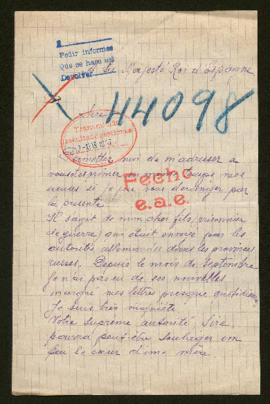 Pedir informes
Que se haga así
Devolver
Sa Majesté Roi d'Espagne
Sire
44098
Permettez moi de m'adresser a
Fecho
e.a.e.
si je viens vous déranger par
la présente.
Il s'agit de mon cher fils, prisonnier
de guerre, qui était envoyé par les
autorités allemandes dans les provinces
russes. Depuis le mois de Septembre
je n'ai pas eu de ses nouvelles
malgré mes lettres presque quotidiennes
Je suis très inquiète
Votre suprême autorité, Sire,
pourra peut être soulager un
peu le cœur d'une mère